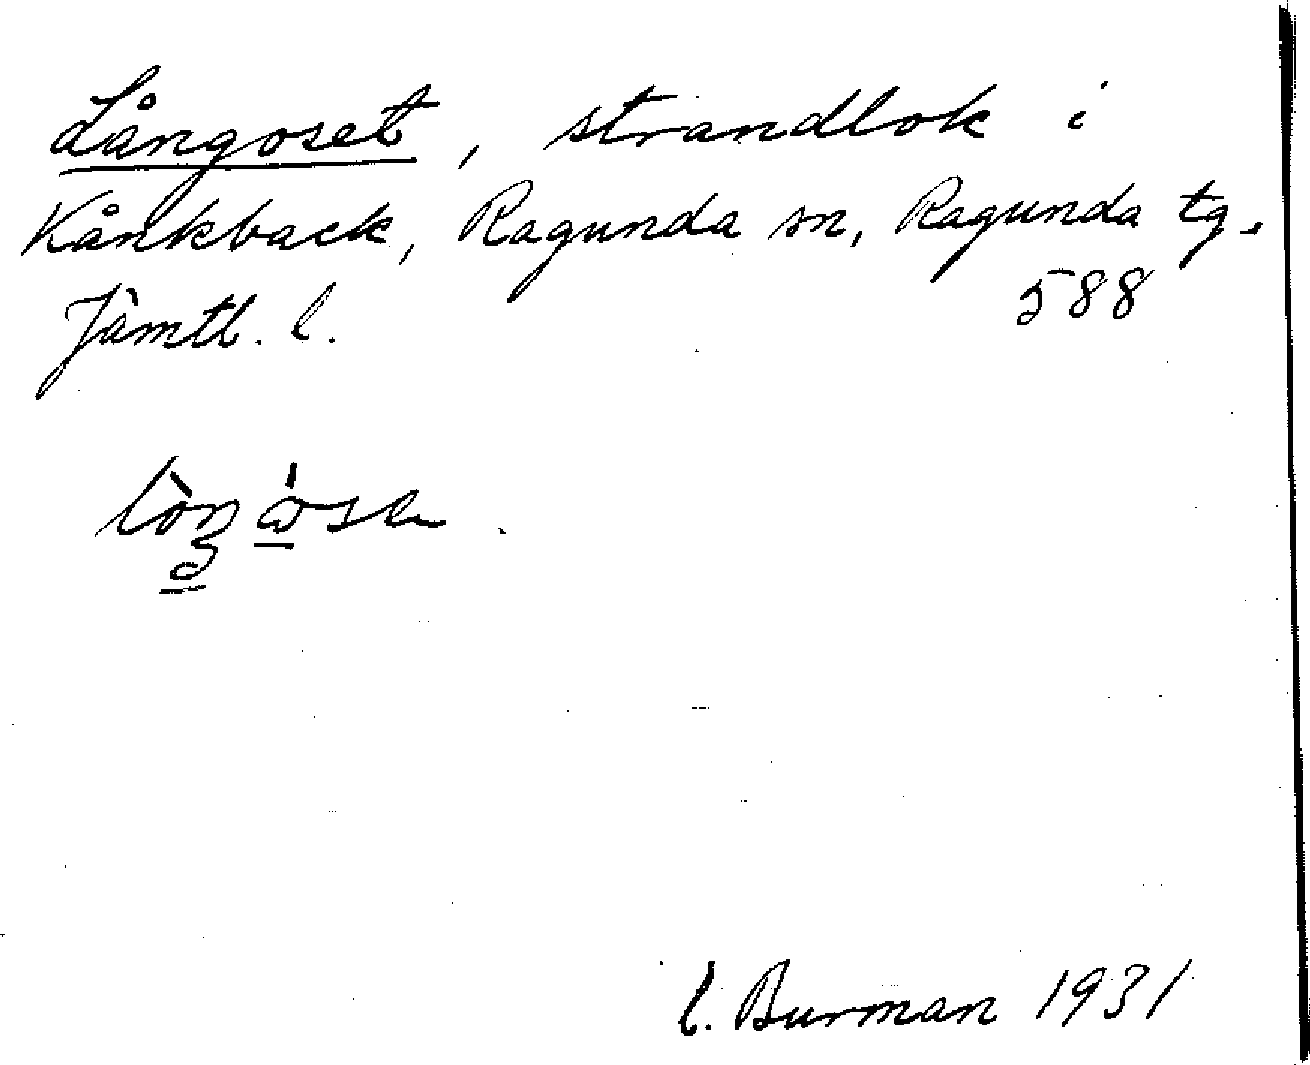 Långoset, strandlok i
Kånkback, Ragunda sn, Ragunda tg.
Jämtl. l.
588
C. Burman 1931